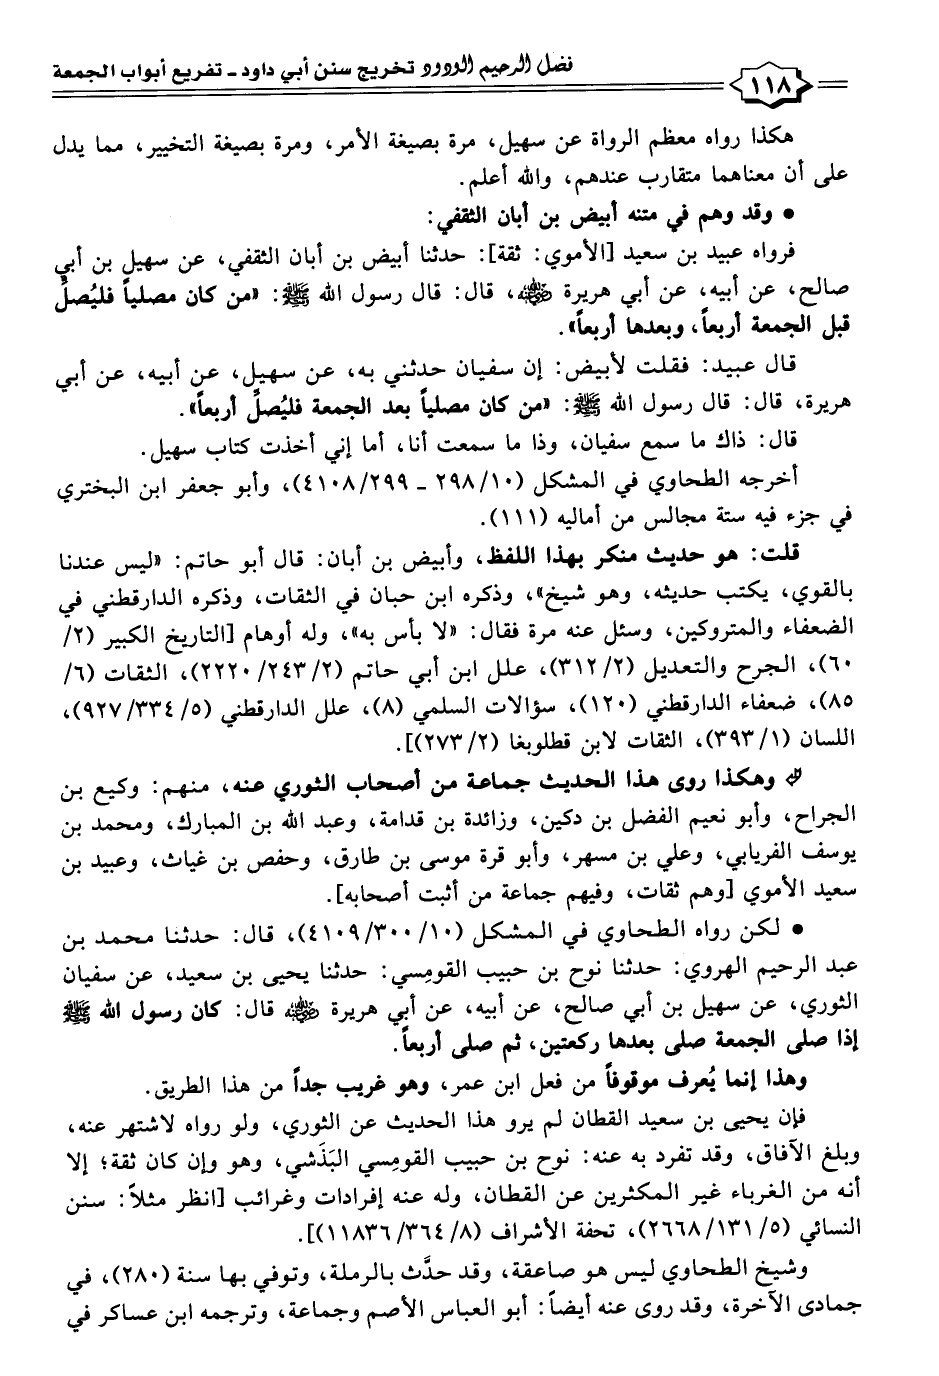 فضل الرحيم الودود تخريج سنن أبي داود ـ تفريع أبواب الجمعة
١١٨
هكذا رواه معظم الرواة عن سهيل، مرة بصيغة الأمر، ومرة بصيغة التخيير، مما يدل
على أن معناهما متقارب عندهم، والله أعلم.
• وقد وهم في متنه أبيض بن أبان الثقفي:
فرواه عبيد بن سعيد [الأموي: ثقة]: حدثنا أبيض بن أبان الثقفي، عن سهيل بن أبي
صالح، عن أبيه، عن أبي هريرة رضي الله عنه، قال: قال رسول الله ﷺ: «من كان مصلياً فليُصلِّ
قبل الجمعة أربعاً، وبعدها أربعاً».
قال عبيد: فقلت لأبيض: إن سفيان حدثني به، عن سهيل، عن أبيه، عن أبي
هريرة، قال: قال رسول الله ﷺ: «من كان مصلياً بعد الجمعة فليُصلِّ أربعاً».
قال: ذاك ما سمع سفيان، وذا ما سمعت أنا، أما إني أخذت كتاب سهيل.
أخرجه الطحاوي في المشكل (١٠/ ٢٩٨ ـ ٢٩٩/ ٤١٠٨)، وأبو جعفر ابن البختري
في جزء فيه ستة مجالس من أماليه (١١١).
قلت: هو حديث منكر بهذا اللفظ، وأبيض بن أبان: قال أبو حاتم: «ليس عندنا
بالقوي، يكتب حديثه، وهو شيخ»، وذكره ابن حبان في الثقات، وذكره الدارقطني في
الضعفاء والمتروكين، وسئل عنه مرة فقال: «لا بأس به»، وله أوهام [التاريخ الكبير (٢/
٦٠)، الجرح والتعديل (٢/ ٣١٢)، علل ابن أبي حاتم (٢/ ٢٤٣/ ٢٢٢٠)، الثقات (٦/
٨٥)، ضعفاء الدارقطني (١٢٠)، سؤالات السلمي (٨)، علل الدارقطني (٥/ ٣٣٤/ ٩٢٧)،
اللسان (١/ ٣٩٣)، الثقات لابن قطلوبغا (٢/ ٢٧٣)].
وهكذا روى هذا الحديث جماعة من أصحاب الثوري عنه، منهم: وكيع بن
الجراح، وأبو نعيم الفضل بن دكين، وزائدة بن قدامة، وعبد الله بن المبارك، ومحمد بن
يوسف الفريابي، وعلي بن مسهر، وأبو قرة موسى بن طارق، وحفص بن غياث، وعبيد بن
سعيد الأموي [وهم ثقات، وفيهم جماعة من أثبت أصحابه].
• لكن رواه الطحاوي في المشكل (١٠/ ٣٠٠/ ٤١٠٩)، قال: حدثنا محمد بن
عبد الرحيم الهروي: حدثنا نوح بن حبيب القومِسي: حدثنا يحيى بن سعيد، عن سفيان
الثوري، عن سهيل بن أبي صالح، عن أبيه، عن أبي هريرة رضي الله عنه قال: كان رسول الله ﷺ
إذا صلى الجمعة صلى بعدها ركعتين، ثم صلى أربعاً.
وهذا إنما يُعرف موقوفاً من فعل ابن عمر، وهو غريب جداً من هذا الطريق.
فإن يحيى بن سعيد القطان لم يرو هذا الحديث عن الثوري، ولو رواه لاشتهر عنه،
وبلغ الآفاق، وقد تفرد به عنه: نوح بن حبيب القومِسي البَذَشي، وهو وإن كان ثقة؛ إلا
أنه من الغرباء غير المكثرين عن القطان، وله عنه إفرادات وغرائب [انظر مثلاً: سنن
النسائي (٥/ ١٣١/ ٢٦٦٨)، تحفة الأشراف (٨/ ٣٦٤/ ١١٨٣٦)].
وشيخ الطحاوي ليس هو صاعقة، وقد حدَّث بالرملة، وتوفي بها سنة (٢٨٠)، في
جمادى الآخرة، وقد روى عنه أيضاً: أبو العباس الأصم وجماعة، وترجمه ابن عساكر في